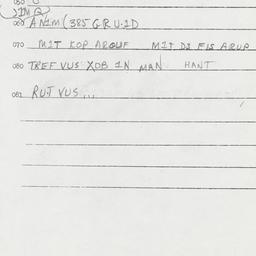 050 U
DIMG
060 ANIM (385 G R U.ID
070 MIT KOP AROUF MIT DI FIS ARUP
080 TREF VUS XOB IN MAN HANT
081 RUJ VUS...